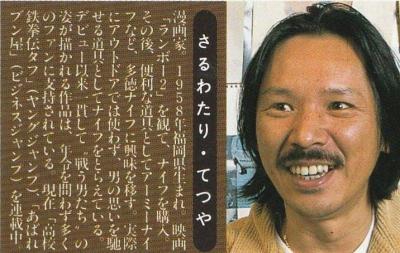 さるわたり・てつや
漫画家。1958年福岡県生まれ。映画
「ランボー2」を観て、ナイフを購入。
その後、便利な道具としてアーミーナイ
フなど、多徳ナイフに興味を移す。実際
にアウトドアでは使わず、男の思いを馳
せる道具としてナイフをとらえている。
デビュー以来一貫して〝戦う男たち〟の
姿が描かれる作品は、年令を問わず多く
のファンに支持されている。現在「高校
鉄拳伝タフ」(ヤングジャンプ)、「あばれ
ブン屋」(ビジネスジャンプ)を連載中